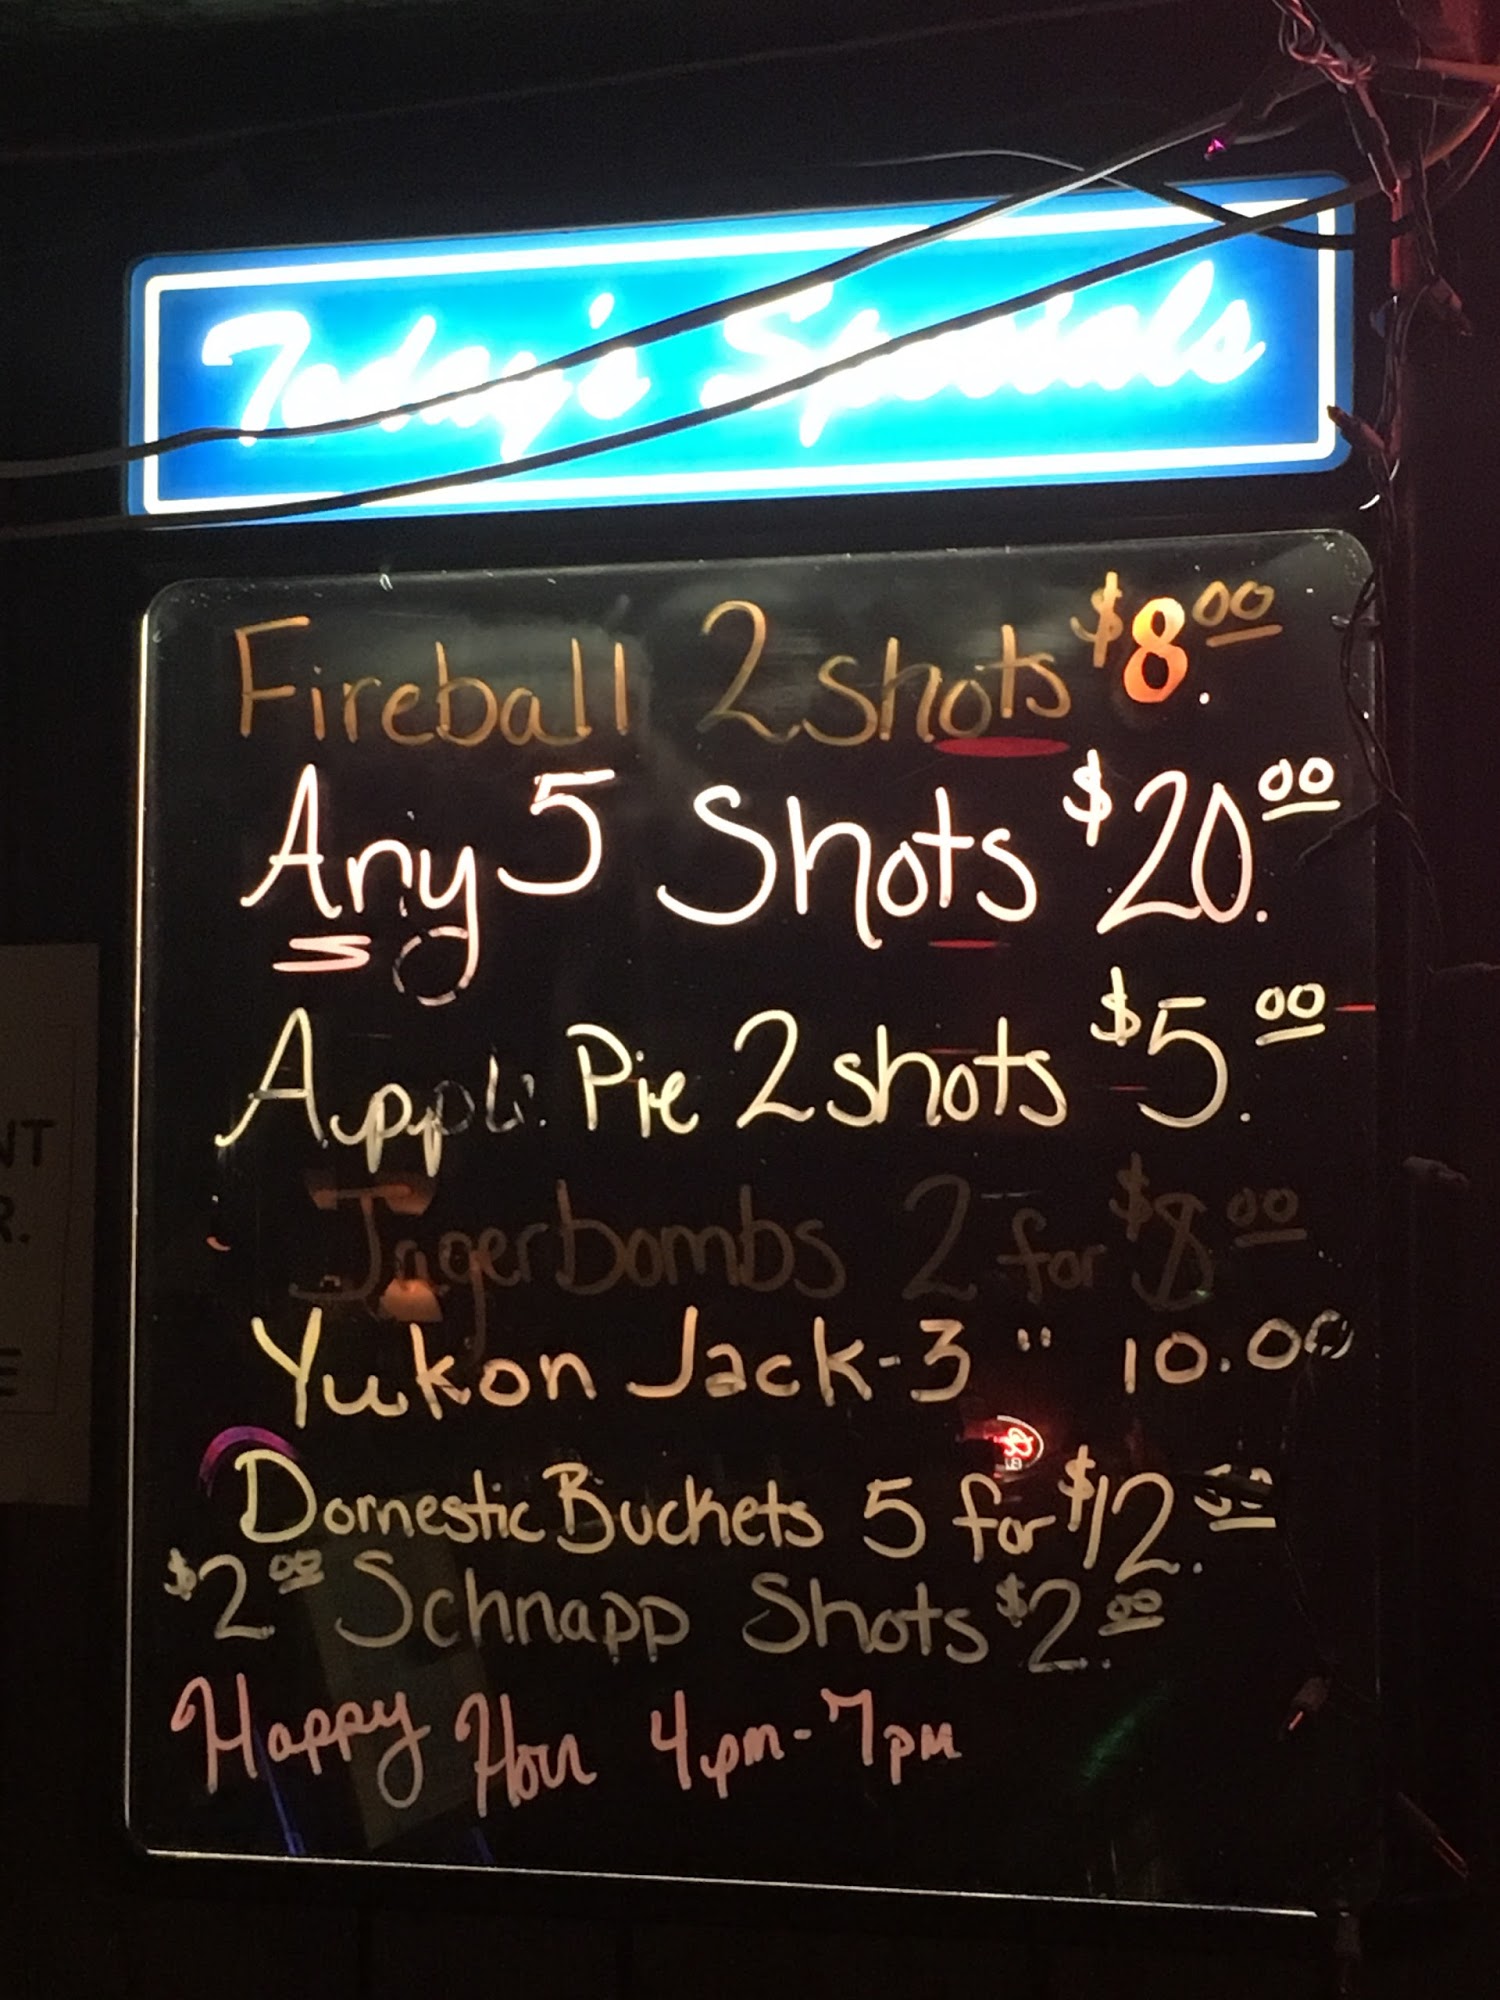 Today's Specials
Fireball 2 shots $8.00
Any 5 Shots $20.00
Apple Pie 2 shots $5.00
Jagerbombs 2 for $8.00
Yukon Jack-3 " 10.00
Domestic Buckets 5 for $12.00
$2.00 Schnapp Shots $2.00
Happy Hour 4pm-7pm